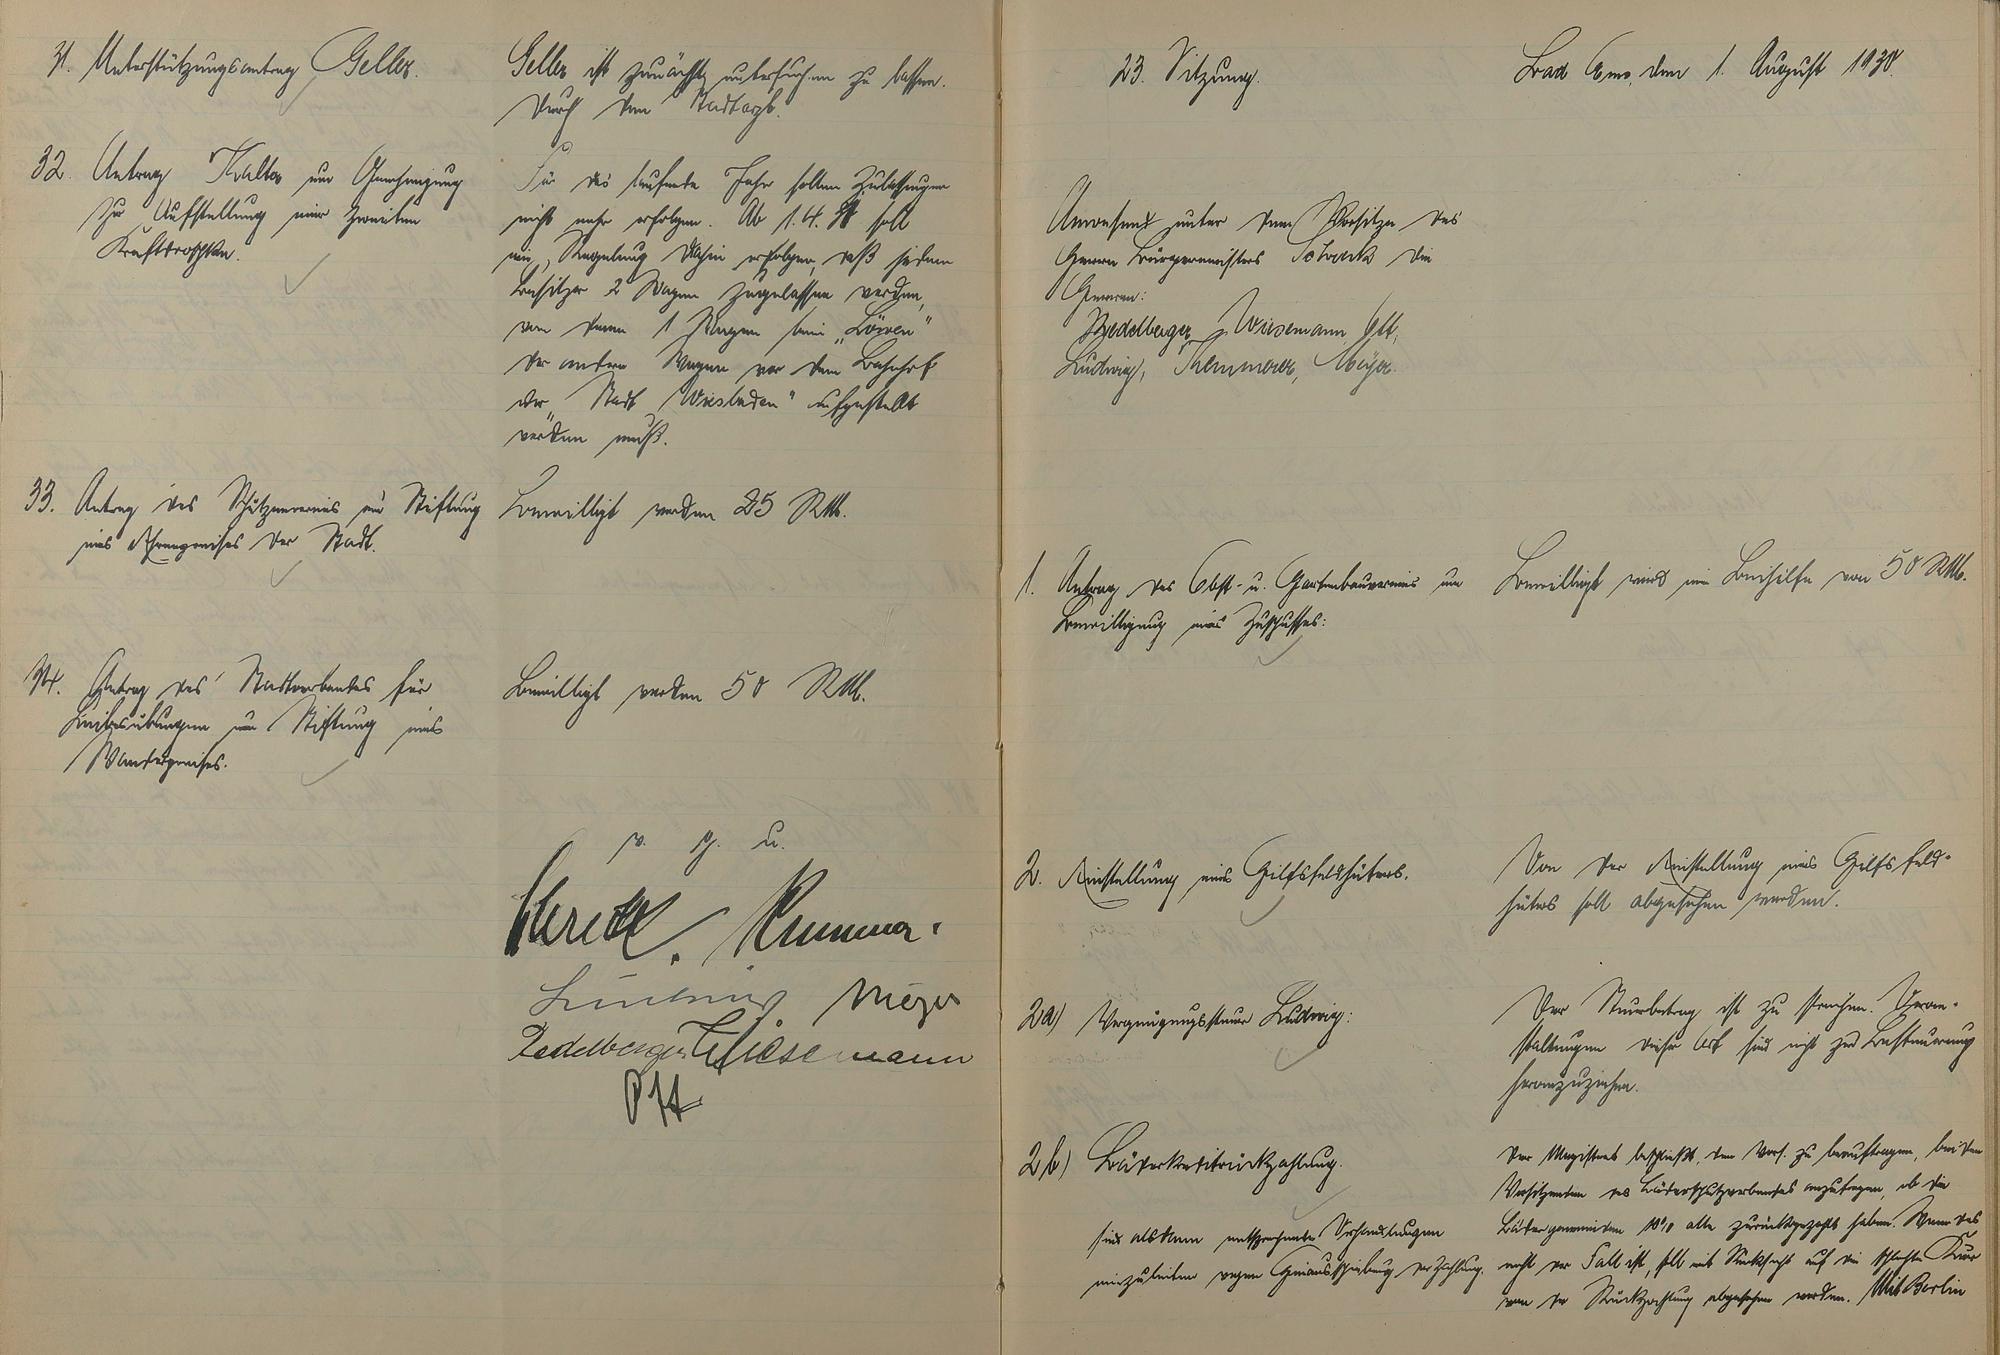 31. Unterstützungsantrag Geller.
Geller ist zunächst untersuchen zu lassen.
durch den Stadtarzt.
32. Antrag um Genehmigung
zu Aufstellung einer zweiten
Kraftdroschke.
Für das laufende Jahr sollen Zulassungen
nicht mehr erfolgen. Ab 1.4. soll
eine Regelung dahin erfolgen, daß jedem
Besitzer 2 Wagen zugelassen werden,
von denen 1 Wagen beim „Löwen"
der andere Wagen vor dem Bahnhof
oder „Stadt Wiesbaden" aufgestellt
werden muß.
33. Antrag des Schützenvereins um Stiftung
eines Ehrenpreises der Stadt.
Bewilligt werden 25 RM.
34. Antrag des Stadtverbandes für
Leibesübungen um Stiftung eines
Wanderpreises.
Bewilligt werden 50 RM.
v. g. u.
Ludwig Meyer
Wiesemann
Ott
23. Sitzung.
Bad Ems, den 1. August 1930.
Anwesend unter dem Vorsitze des
Herrn Bürgermeisters die
Herren:
Wiesemann Ott,
Ludwig, Meyer.
1. Antrag des Obst- u. Gartenbauvereins um
Bewilligung eines Zuschusses:
Bewilligt wird eine Beihilfe von 50 RM.
2. Einstellung eines Hilfsfeldhüters.
Von der Einstellung eines Hilfsfeld-
hüters soll abgesehen werden.
2a) Vergnügungssteuer Ludwig:
Der Steuerbetrag ist zu streichen. Veran-
staltungen dieser Art sind nicht zur Besteuerung
heranzuziehen.
2b) Bäderkreditrückzahlung.
Der Magistrat beschließt, den Vors. zu beauftragen, bei dem
Vorsitzenden des Bäderschutzverbandes anzufragen, ob die
Bädergemeinden 10% alle zurückgezahlt haben. Wenn das
nicht der Fall ist, soll mit Rücksicht auf die schlechte Kur
von der Rückzahlung abgesehen werden. Mit Berlin
sind alsdann entsprechende Verhandlungen
einzuleiten wegen Hinausschiebung der Zahlung.